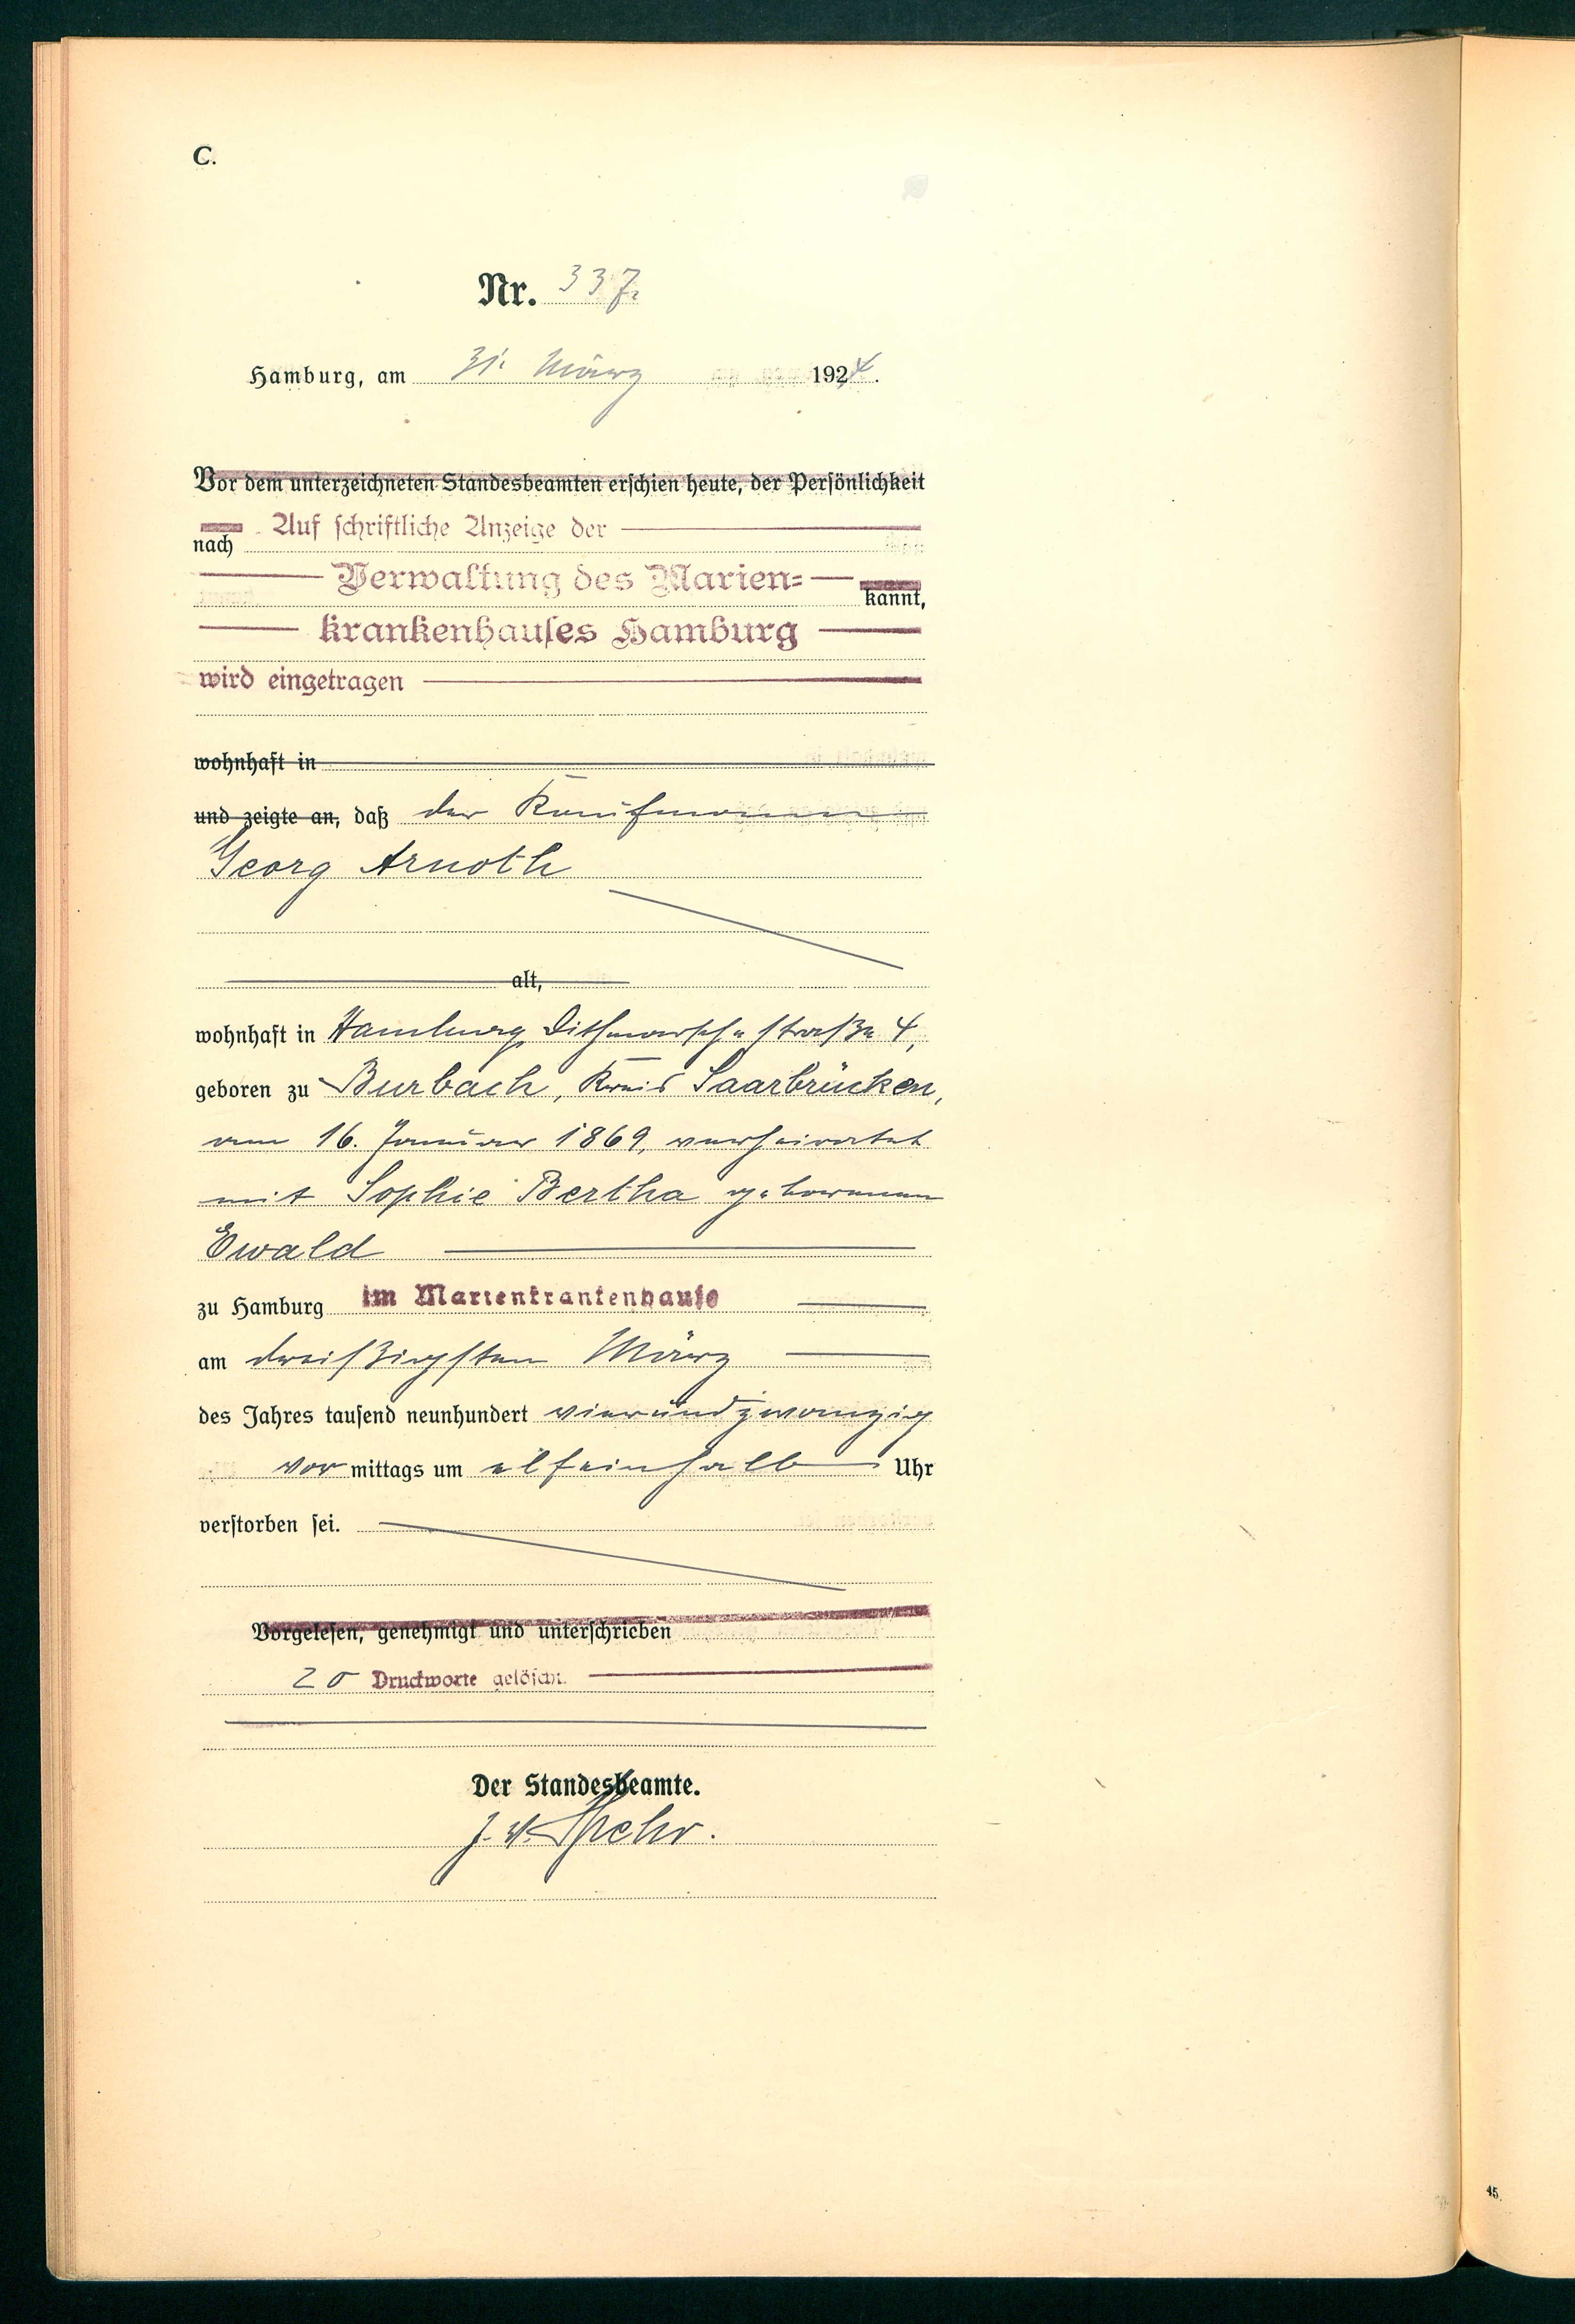 C.
Nr. 337.
Hamburg, am 31. März 1924.
Vor dem unterzeichneten Standesbeamten erschien heute, der Persönlichkeit
Auf schriftliche Anzeige der
nach
Verwaltung des Marien=
kannt,
krankenhauses Hamburg
wird eingetragen
wohnhaft in
und zeigte an, daß der Kaufmann
Georg Arnoth
alt,
wohnhaft in Hamburg, Dithmarscherstraße 4,
geboren zu Burbach, Kreis Saarbrücken,
am 16. Januar 1869, verheiratet
mit Sophie Bertha geborenen
Ewald
zu Hamburg im Marienkrankenhause
am dreißigsten März
des Jahres tausend neunhundert vierundzwanzig
vor mittags um elfeinhalb Uhr
verstorben sei.
Vorgelesen, genehmigt und unterschrieben
20 Druckworte gelöscht.
Der Standesbeamte.
J. V. Spehr.
45